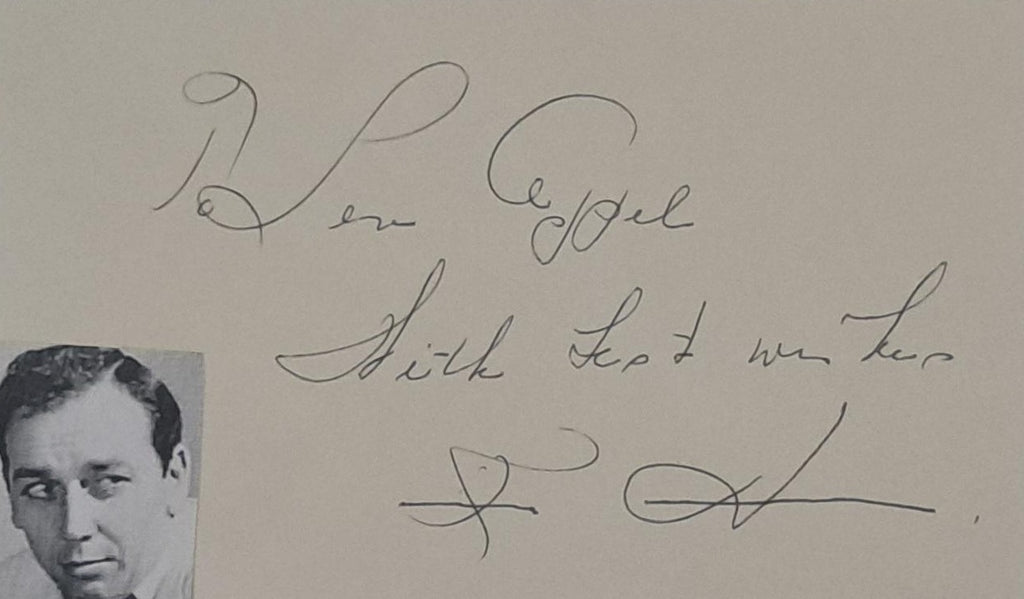 To Len Appel
With best wishes